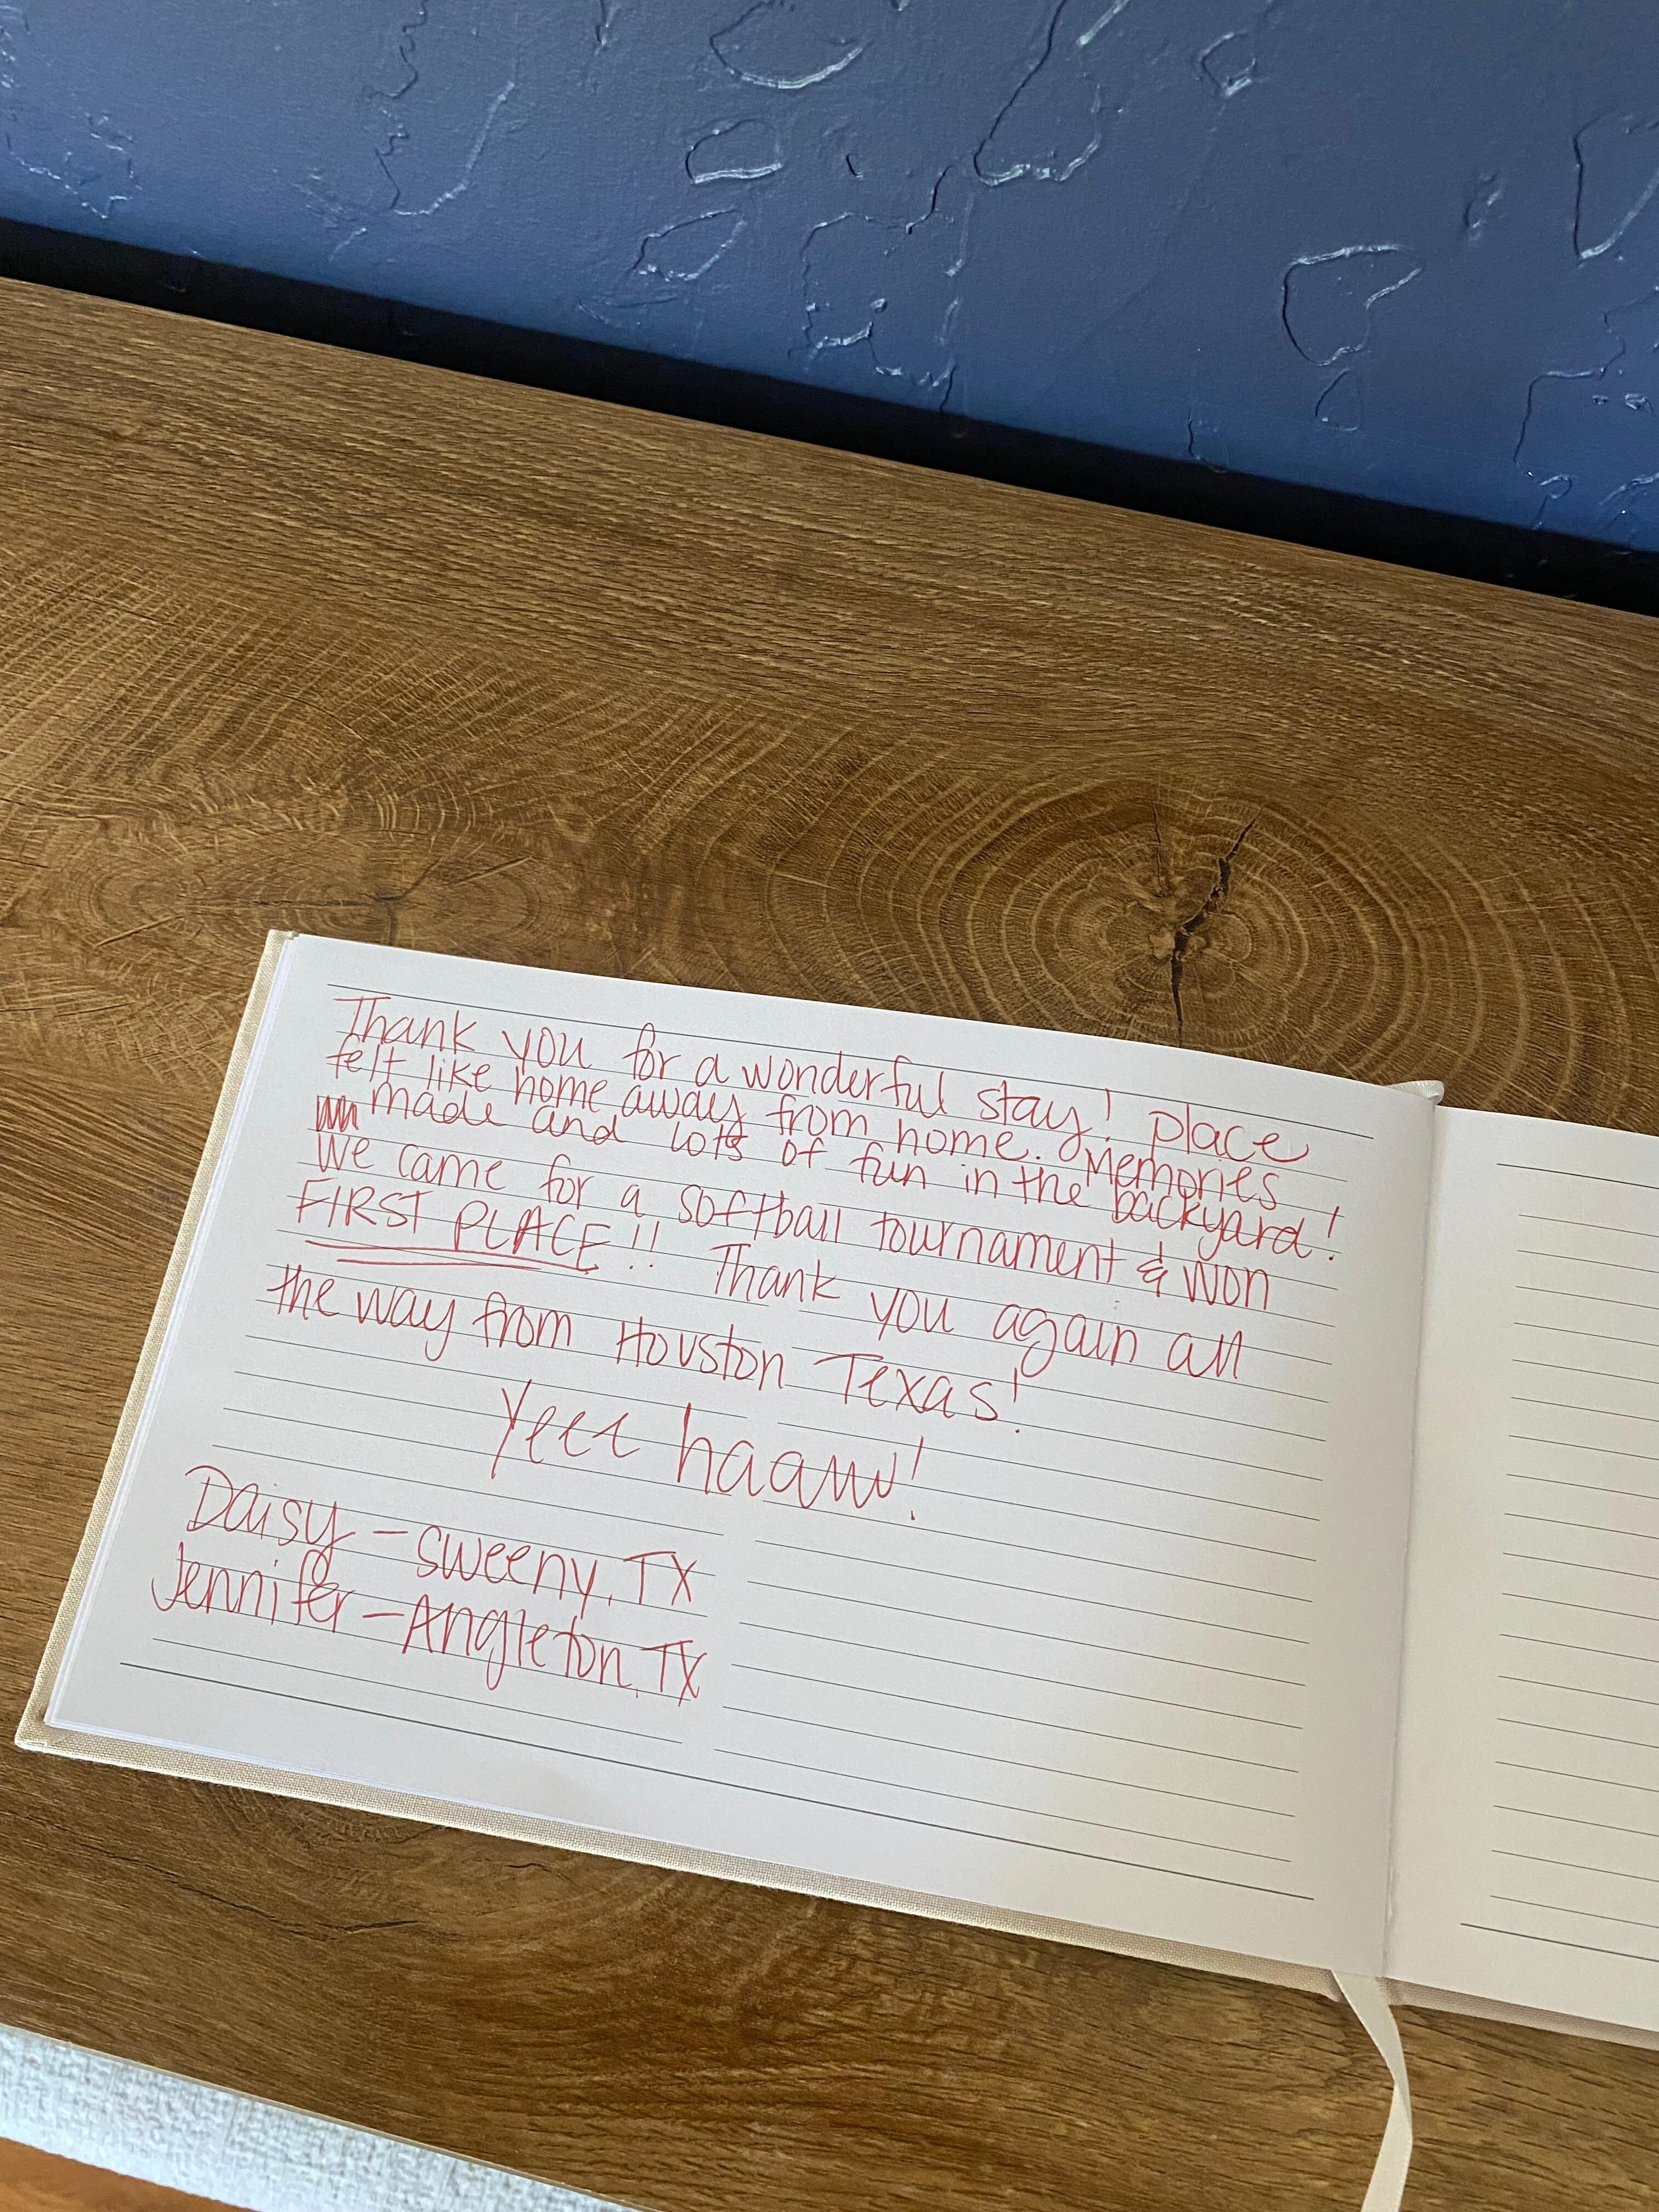 Thank you for a wonderful stay! Place
felt like home away from home. Memories
made and lots of fun in the backyard!
We came for a softball tournament & won
FIRST PLACE!! Thank you again all
the way from Houston Texas!
Yeee haaaw!
Daisy - Sweeny, TX
Jennifer - Angleton, TX